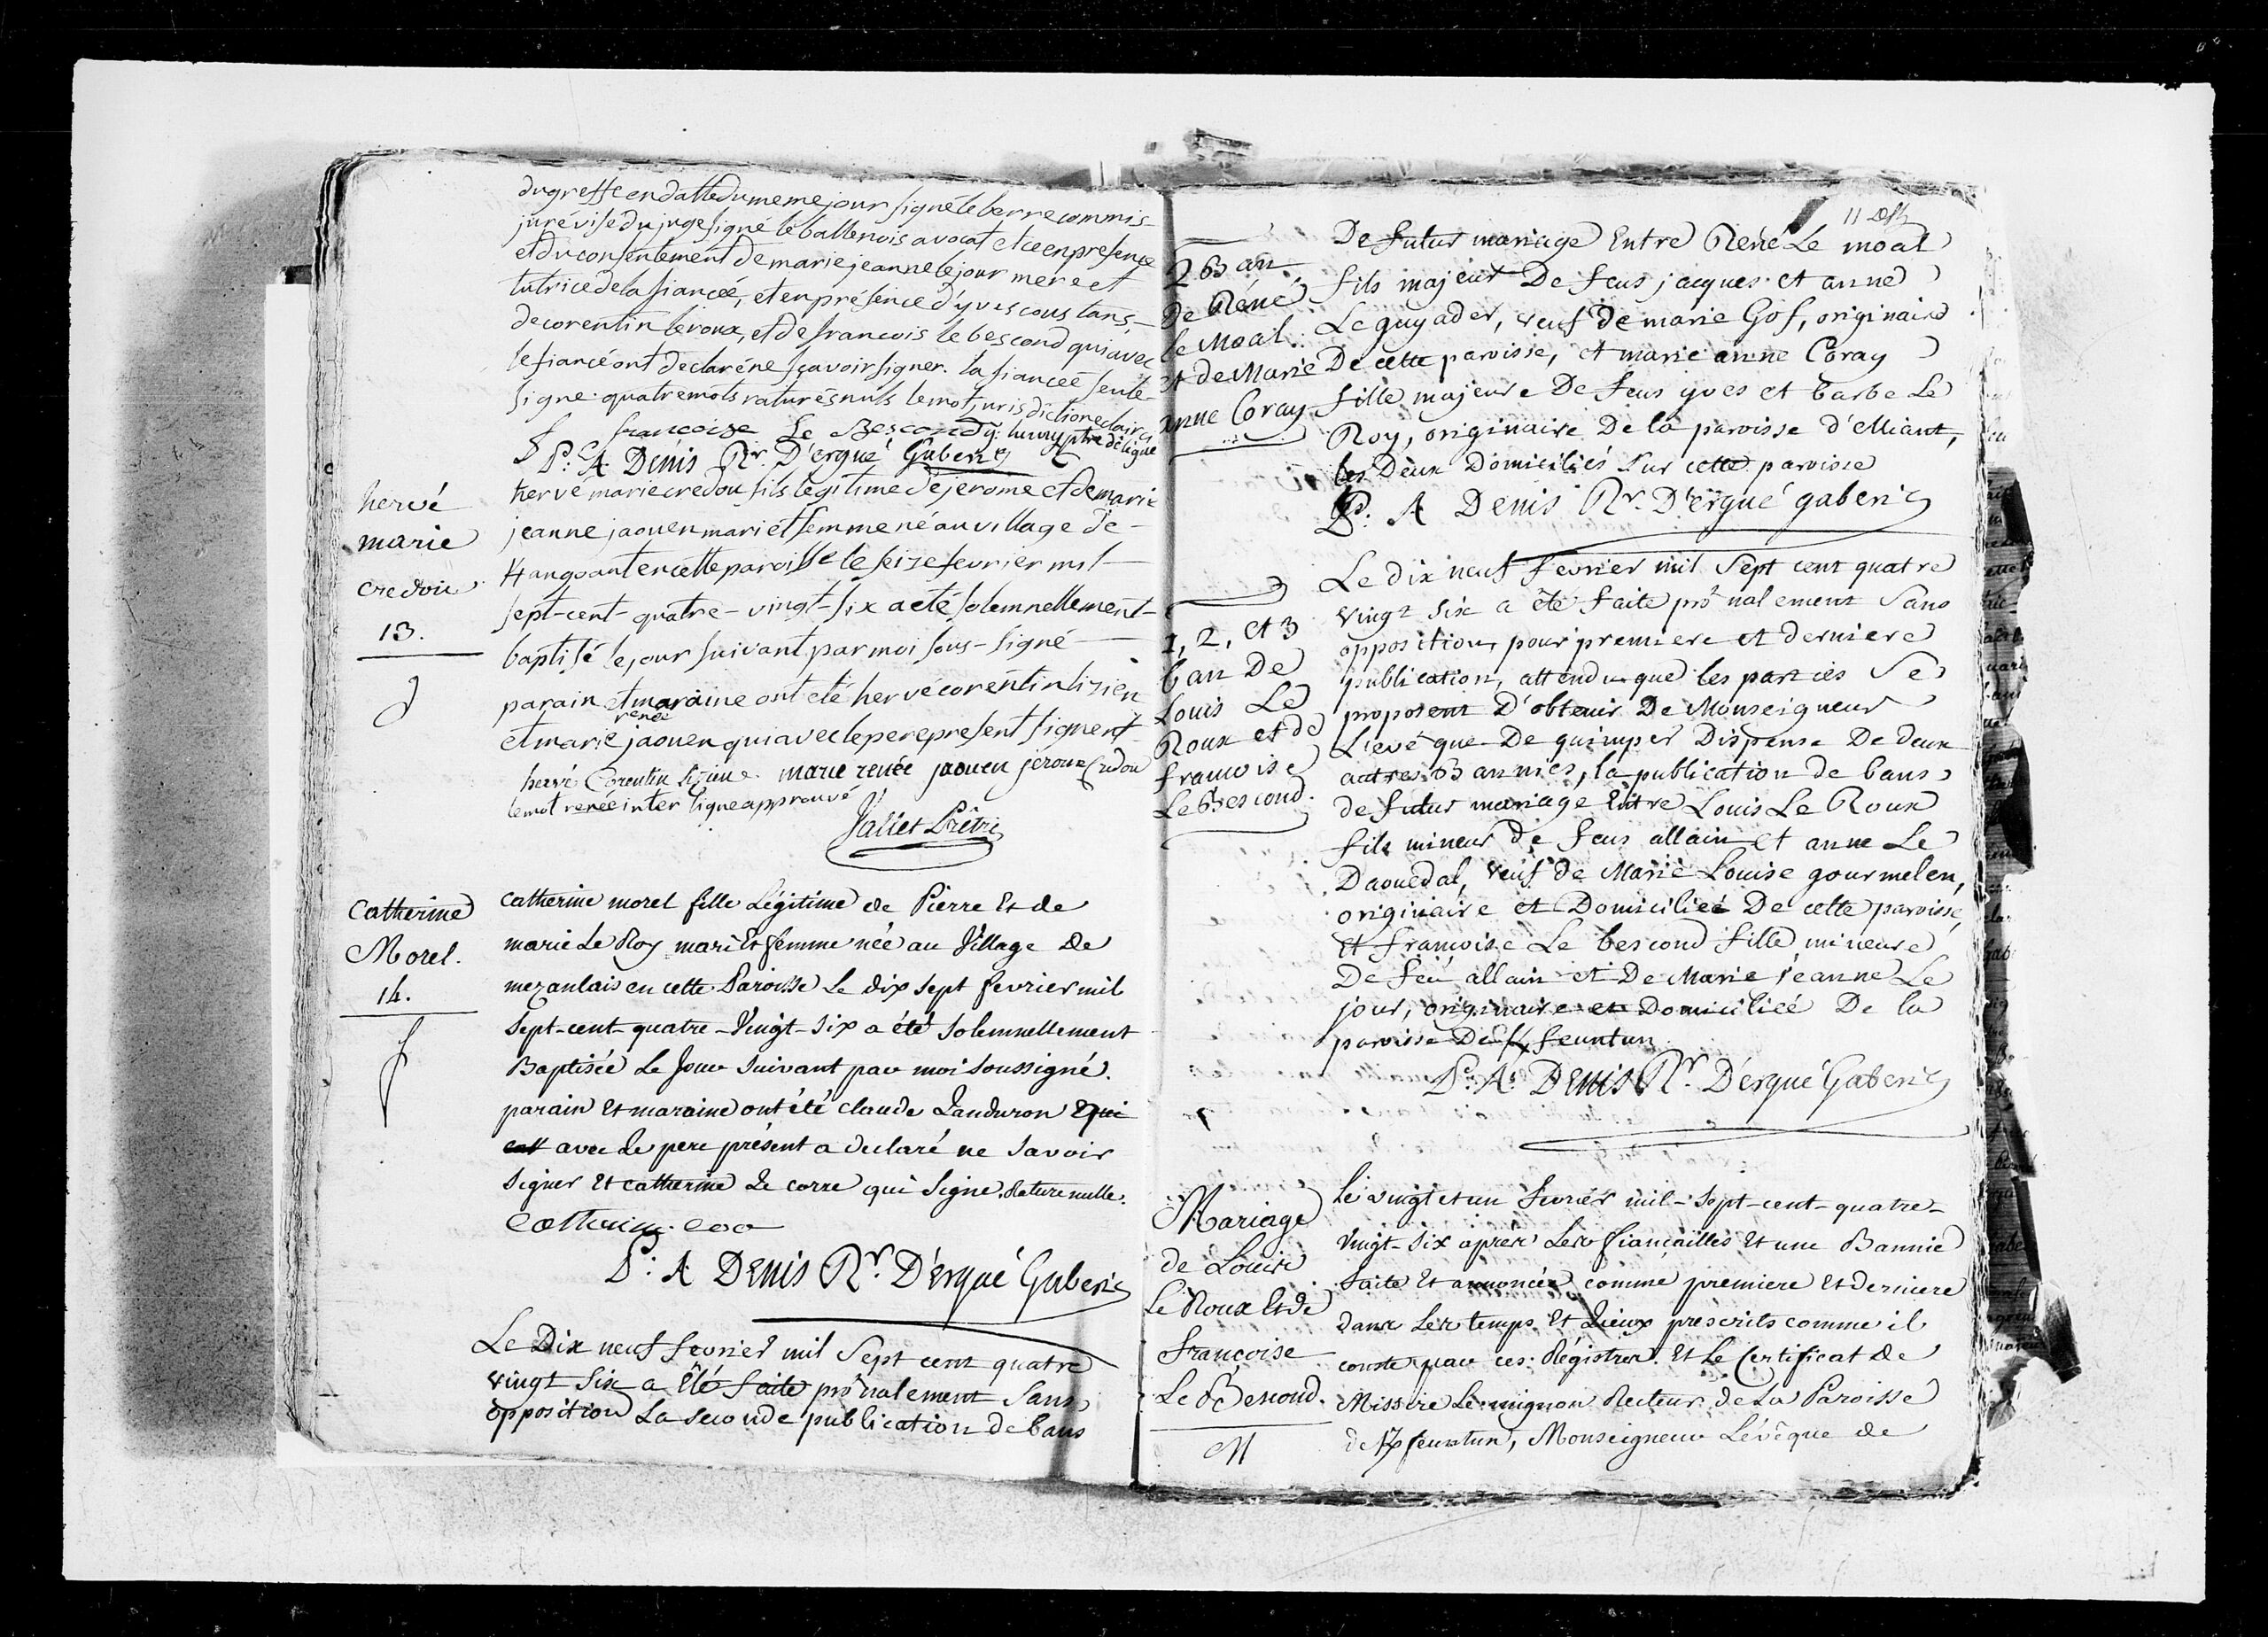 du greffe en datte du meme jour signé le berre commis
juré vise du juge signé le ballenois avocat et ce en presence
et du consentement de marie jeanne le jour mere et
tutrice de la fiancée, et en présence d'yves coustans,
de corentin le roux, et de francois le bescond qui avec
le fiancé ont declaré ne sçavoir signer. la fiancée seule
signe. quatre mots raturés nuls le mot, jurisdiction eclairci
francoise Le Bescond y. luny ptre délégué
P: A Denis Rr. D'ergué Gaberic
hervé
marie
credou
13.
hervé marie credou fils legitime de jerome et de marie
jeanne jaouen mari et femme né au village de
Kangoant en cette paroisse le seize fevrier mil
sept-cent-quatre-vingt-six a eté solemnellement
baptisé le jour suivant par moi sous-signé
parain et maraine ont eté hervé corentin lizien
renée
et marie jaouen qui avec le pere present signent
hervé Corentin lizien marie renée jaouen jerome Credou
le mot renée inter ligne approuvé
Jallet Prêtre
Catherine
Morel.
14.
Catherine morel fille Légitime de Pierre Et de
marie Le Roy mari Et femme née au Village De
mezanlais en cette Paroisse Le dix sept fevrier mil
sept-cent-quatre-Vingt-six a été solemnellement
Baptisée Le Jour suivant par moi soussigné.
parain Et maraine ont été Claude Landuron Equi
avec Le pere présent a declaré ne savoir
signer Et catherine Le corre qui signe. Rature nulle.
Catherine coo
P: A Denis Rr. D'ergué Gaberic
Le Dix neuf fevrier mil Sept cent quatre
vingt six a Eté faite prônalement sans
opposition La seconde publication de bans
11 Dh
2 B an
de Réné
le Moal
et de Marie
anne Coray
De futur mariage Entre René Le moal
fils majeur De feus jacques et anne
Le guyader, veuf de marie Gof, originaire
De cette paroisse, et marie anne Coray
fille majeure De feus yves et barbe Le
Roy, originaire De la paroisse d'Elliant,
les Deux Domiciliés sur cette paroisse
P: A Denis Rr. D'ergué gaberic
1, 2, et 3
ban De
Louis Le
Roux et de
francoise
Le Bescond.
Le dix neuf fevrier mil Sept cent quatre
vingt six a êté faite prônalement sans
opposition, pour premiere et derniere
publication, attendu que les parties se
proposent D'obtenir De Monseigneur
L'evêque De quimper Dispense De deux
autres Bannies, la publication de bans
de futur mariage Entre Louis Le Roux
fils mineur De feus allain et anne Le
Daouedal, veuf de Marie Louise gourmelen,
originaire et Domiciliée De cette paroisse,
et francoise Le bescond fille mineure
De feu allain et De Marie jeanne Le
jour, originaire et Domiciliée De la
paroisse De feuntun
P: A: Denis Rr. D'ergué Gaberic
Mariage
de Louis
Le Roux Et de
Françoise
Le Bescond.
M
Le vingt et un fevrier mil-sept-cent-quatre-
Vingt-six après Les fiançailles Et une Bannie
faite Et annoncée comme premiere Et derniere
dans Les temps Et Lieux prescrits comme il
conste par ces Régistres. Et Le Certificat de
Missire Le mignon Recteur de La Paroisse
de feuntun, Monseigneur L'évêque de